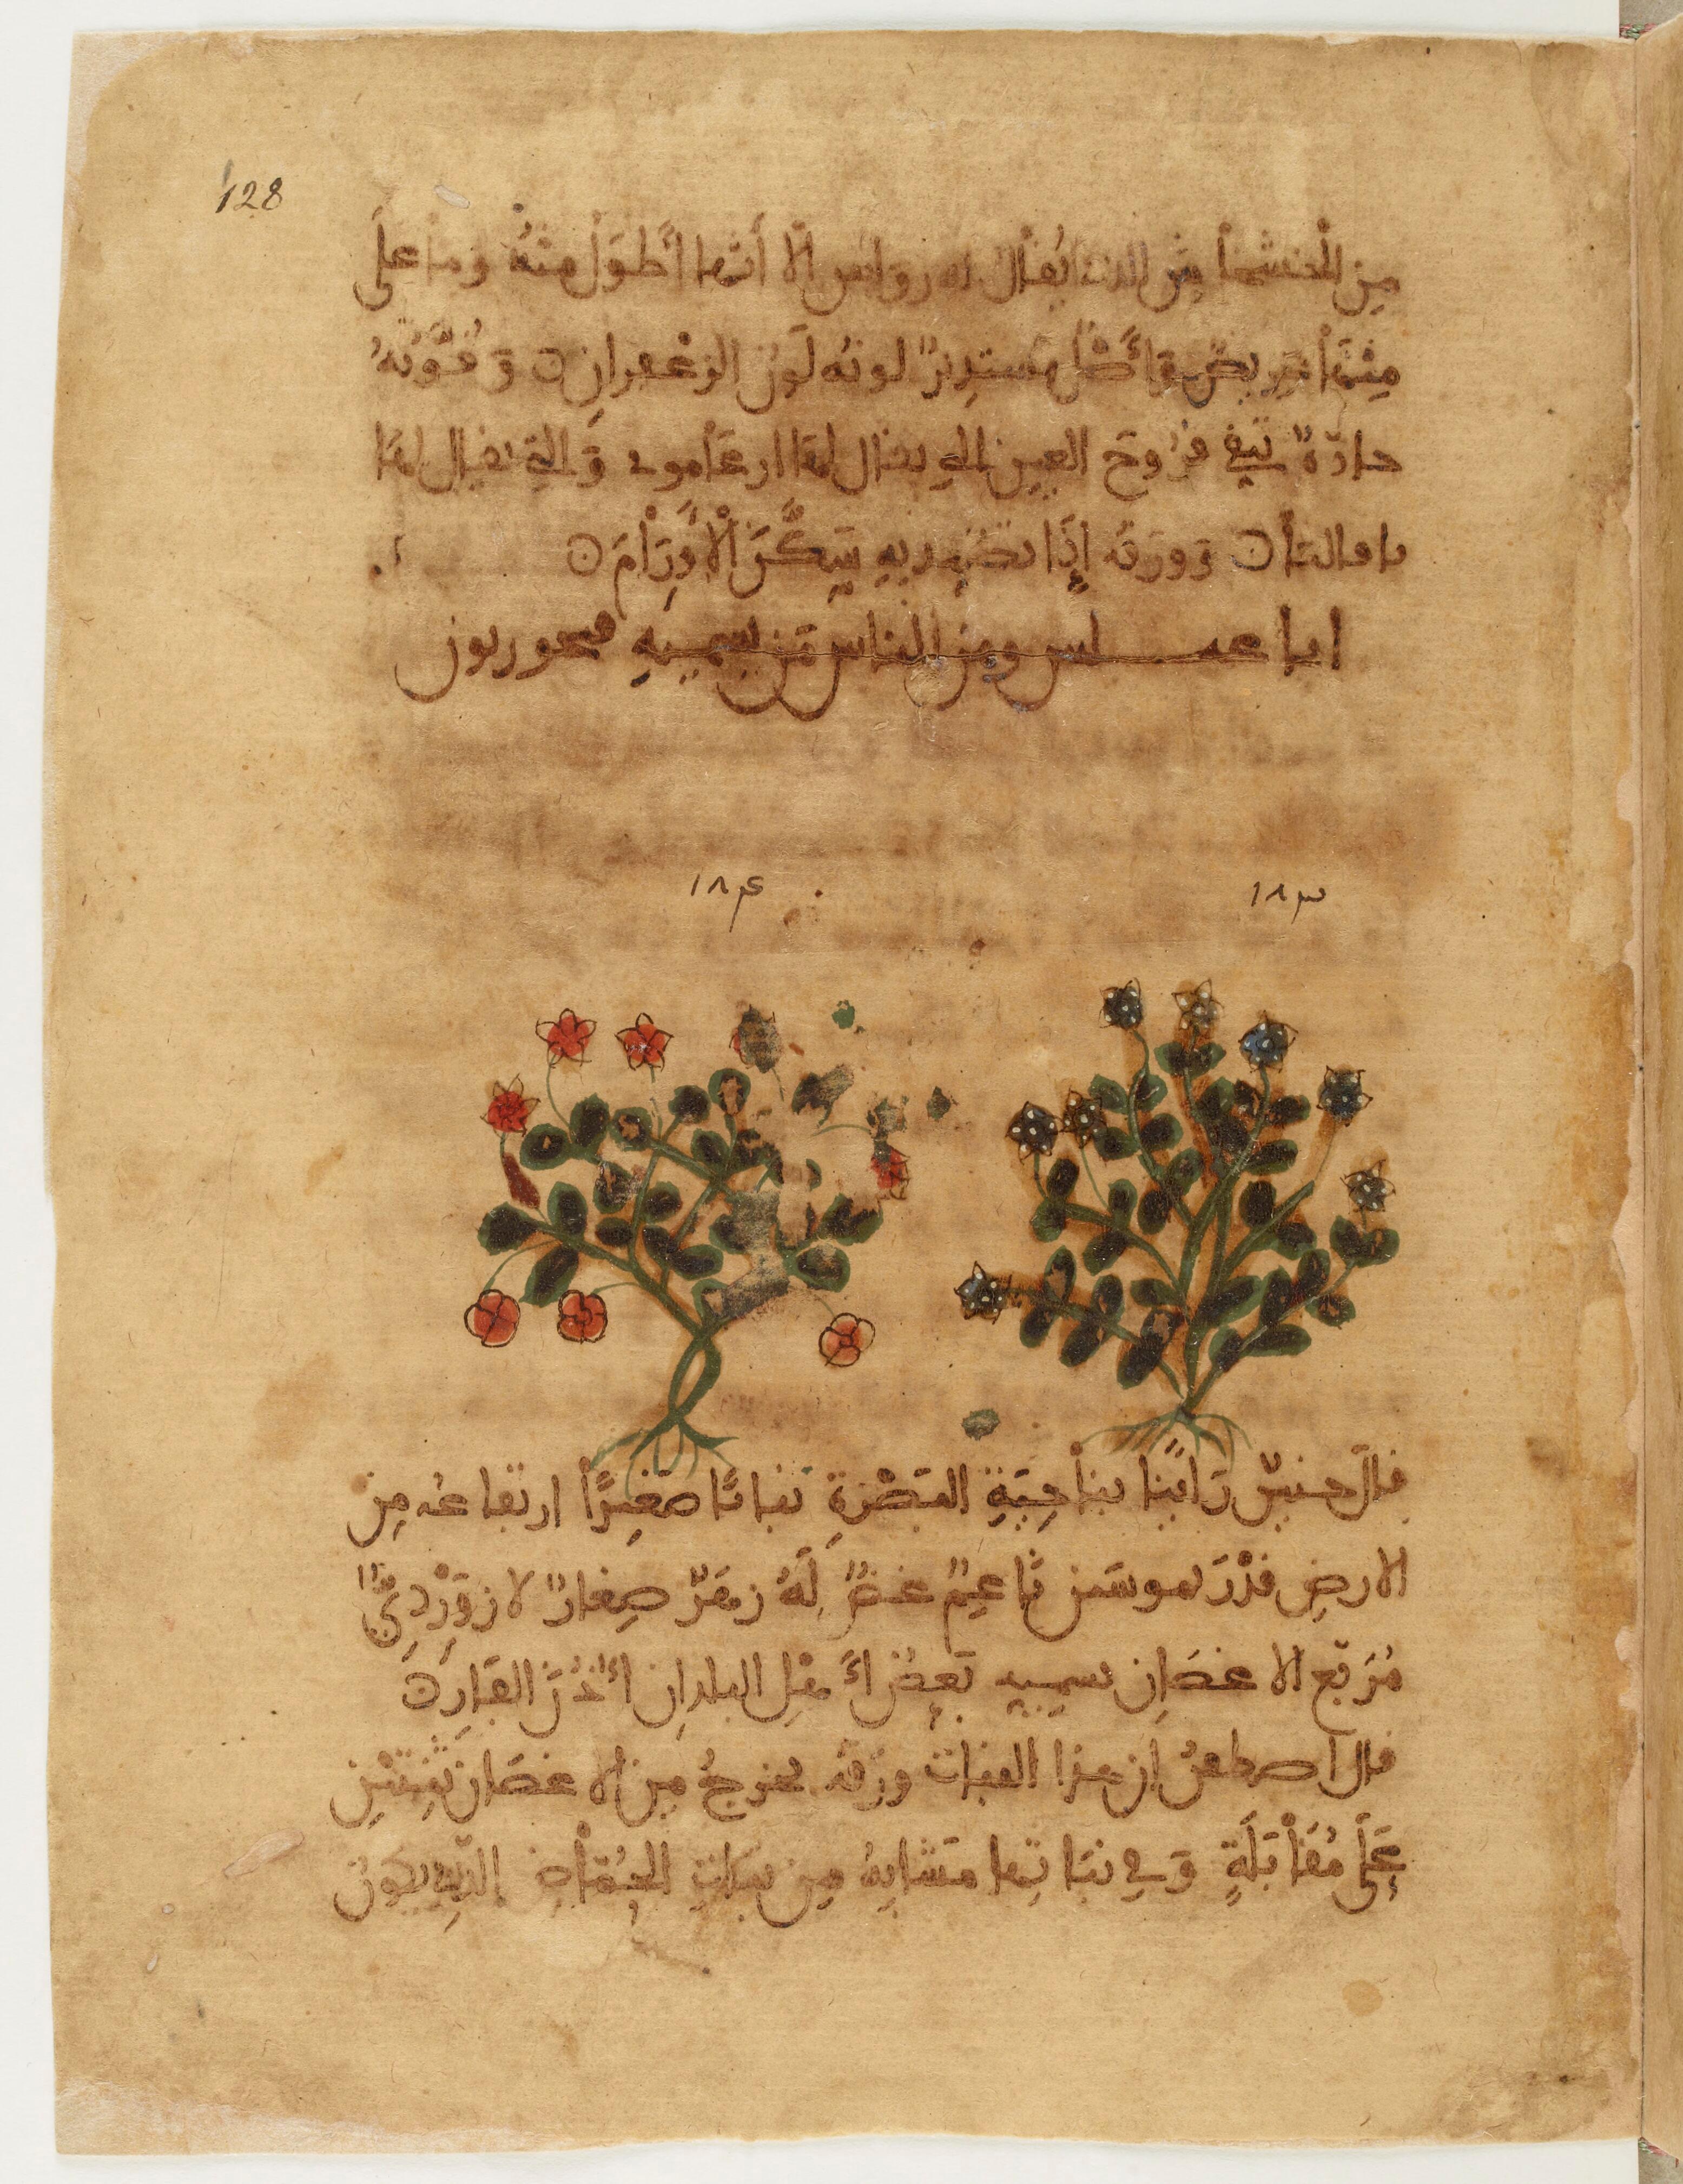 128
من الخشخاش الذي يُقال له رواس إلّا أنّها أطوَل منهُ وما على
مِنْهَا عريض وأصل مستدير لونه لَون الزعفران ۞ وَقُوَّتُهُ
حادّة تبرئ قروحَ العين التي يقال لها ارغامون وَالتي يقال لها
نافاليا ۞ وَورَقُه إذَا تضمد بهِ سَكَّنَ الْأَوْرَامَ ۞
اناغــــلس ومن الناس مَن يسميهِ فخوريون
١٨٤ ١٨٣
قال حنين رَأينا بناحِيَةِ البَصْرَةِ نباتًا صَغِيرًا ارتفاعُه مِن
الارضِ قَدْرَ نَاعِمٌ غضٌّ لَهُ زهَرٌ صِغارٌ لازوَرْدِيٌّ
مُرَبّع الاغصَانِ يسميه بَعضُ أهْلِ البلدانِ آذُنَ الفَارِ ۞
قال اصطفنُ ان هذا النبات ورَقُه يخرجُ مِن الاغصَان ثِنْتَيْنِ
عَلَى مُقَابَلَةٍ وَفي نباتِها مَشابِهُ مِن نباتِ الحُمّاض الّذِي يكونُ